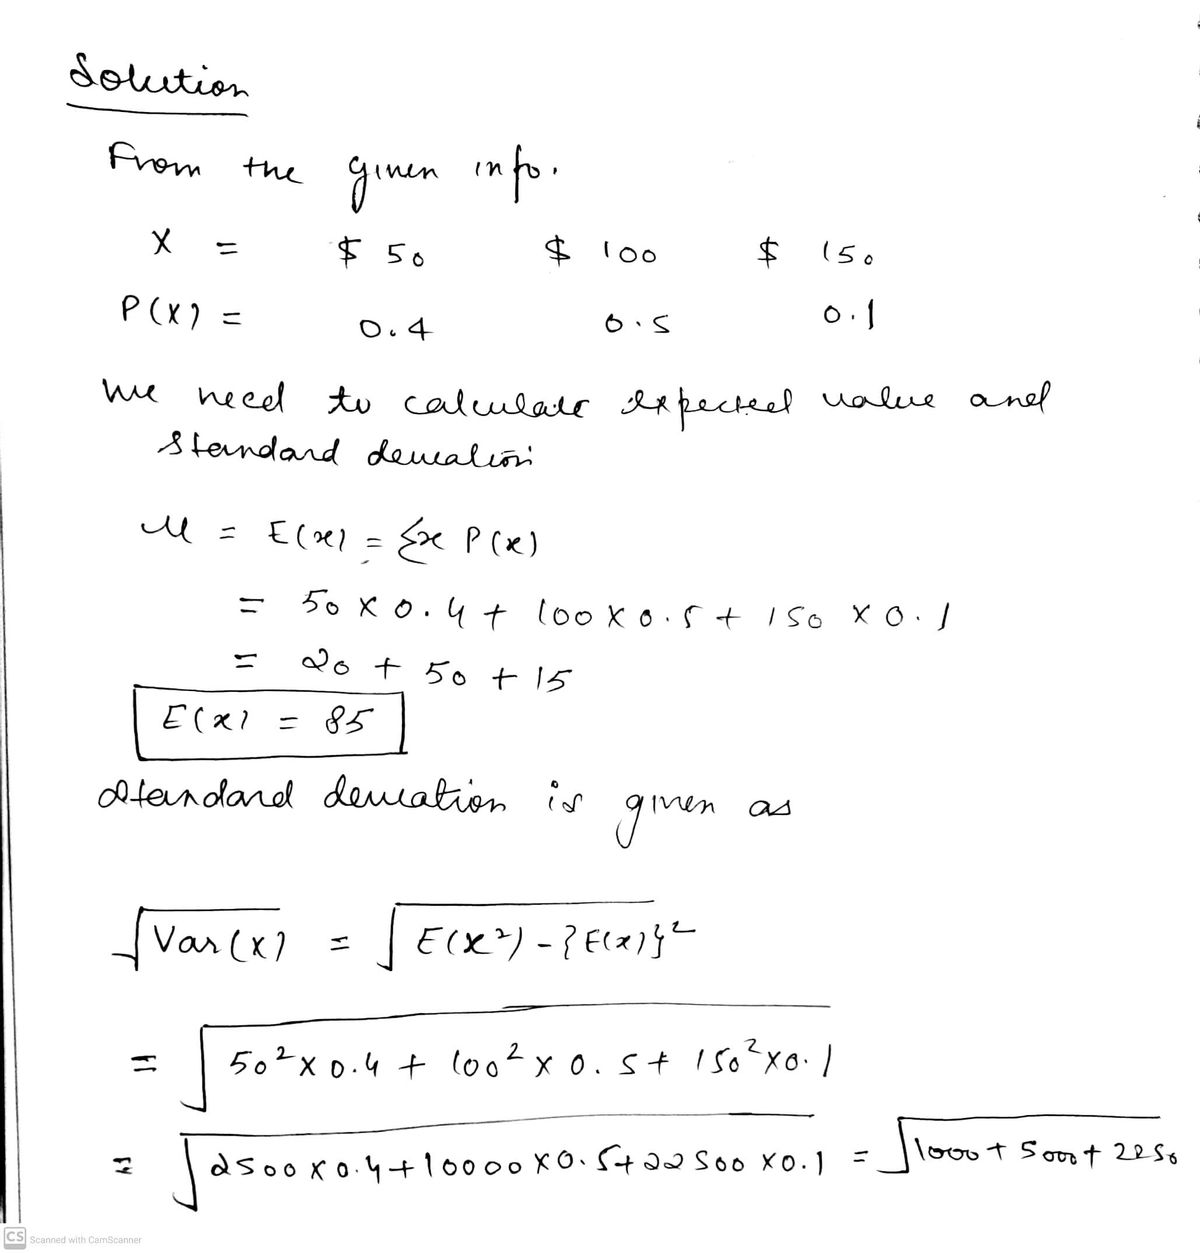 Solution
From the given info.
X = $ 50 $ 100 $ 150
P(X) = 0.4 0.5 0.1
we need to calculate expected value and
standard deviation
μ = E(x) = Σx P(x)
= 50 × 0.4 + 100 × 0.5 + 150 × 0.1
= 20 + 50 + 15
E(x) = 85
Standard deviation is given as
√Var(X) = √E(X²) - {E(x)}²
= √50² × 0.4 + 100² × 0.5 + 150² × 0.1
= √2500 × 0.4 + 10000 × 0.5 + 22500 × 0.1 = √1000 + 5000 + 2250
CS Scanned with CamScanner